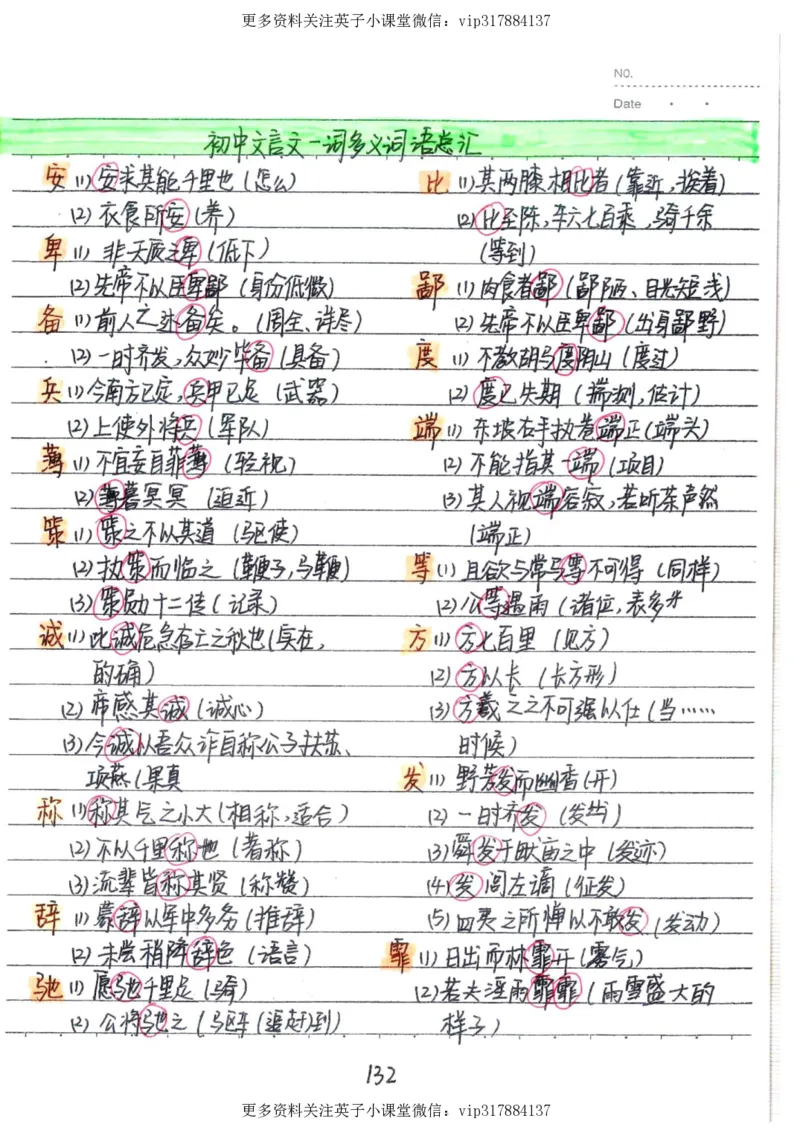 更多资料关注英子小课堂微信：vip317884137
NO.
Date
初中文言文一词多义词语总汇
安 (1) 安求其能千里也 (怎么)
(2) 衣食所安 (养)
卑 (1) 非天质之卑 (低下)
(2) 先帝不以臣卑鄙 (身份低微)
备 (1) 前人之述备矣。(周全、详尽)
(2) 一时齐发,众妙毕备 (具备)
兵 (1) 今南方已定,兵甲已足 (武器)
(2) 上使外将兵 (军队)
薄 (1) 不宜妄自菲薄 (轻视)
(2) 薄暮冥冥 (迫近)
策 (1) 策之不以其道 (驱使)
(2) 执策而临之 (鞭子,马鞭)
(3) 策勋十二传 (记录)
诚 (1) 此诚危急存亡之秋也 (实在,
的确)
(2) 帝感其诚 (诚心)
(3) 今诚以吾众诈自称公子扶苏、
项燕 (果真
称 (1) 称其气之小大 (相称,适合)
(2) 不以千里称也 (著称)
(3) 流辈皆称其贤 (称赞)
辞 (1) 蒙辞以军中多务 (推辞)
(2) 未尝稍降辞色 (语言)
驰 (1) 愿驰千里足 (骑)
(2) 公将驰之 (驱车(追赶)到)
比 (1) 其两膝相比者 (靠近,挨着)
(2) 比至陈,车六七百乘,骑千余
(等到)
鄙 (1) 肉食者鄙 (鄙陋、目光短浅)
(2) 先帝不以臣卑鄙 (出身鄙野)
度 (1) 不教胡马度阴山 (度过)
(2) 度已失期 (揣测,估计)
端 (1) 东坡右手执卷端正 (端头)
(2) 不能指其一端 (项目)
(3) 其人视端容寂,若听茶声然
(端正)
等 (1) 且欲与常马等不可得 (同样)
(2) 公等遇雨 (诸位,表多半
方 (1) 方七百里 (见方)
(2) 方以长 (长方形)
(3) 方羲之之不可强以仕 (当……
时候)
发 (1) 野芳发而幽香 (开)
(2) 一时齐发 (发出)
(3) 舜发于畎亩之中 (发迹)
(4) 发闾左谪 (征发)
(5) 四夷之所惮以不敢发 (发动)
霏 (1) 日出而林霏开 (雾气)
(2) 若夫淫雨霏霏 (雨雪盛大的
样子)
132
更多资料关注英子小课堂微信：vip317884137